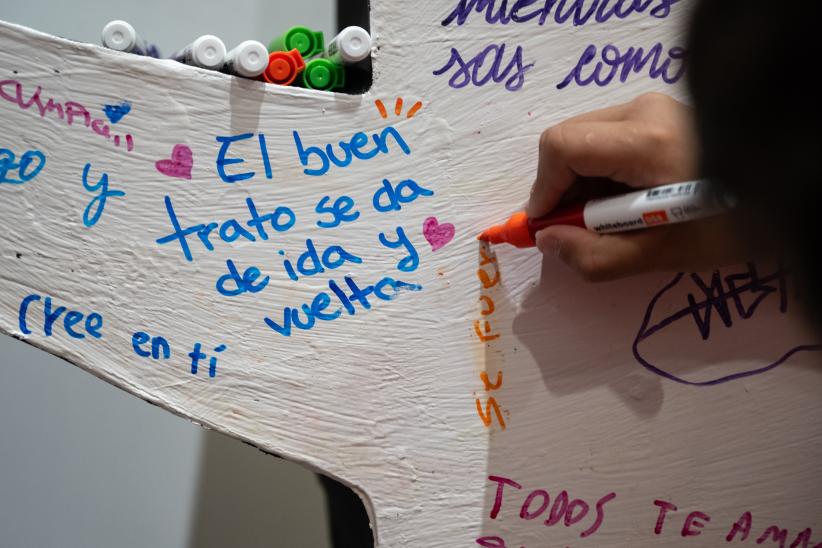 mientras
sas como
y
El buen
trato se da
de ida y
vuelta
Cree en tí
whiteboard
TODOS TE AMA